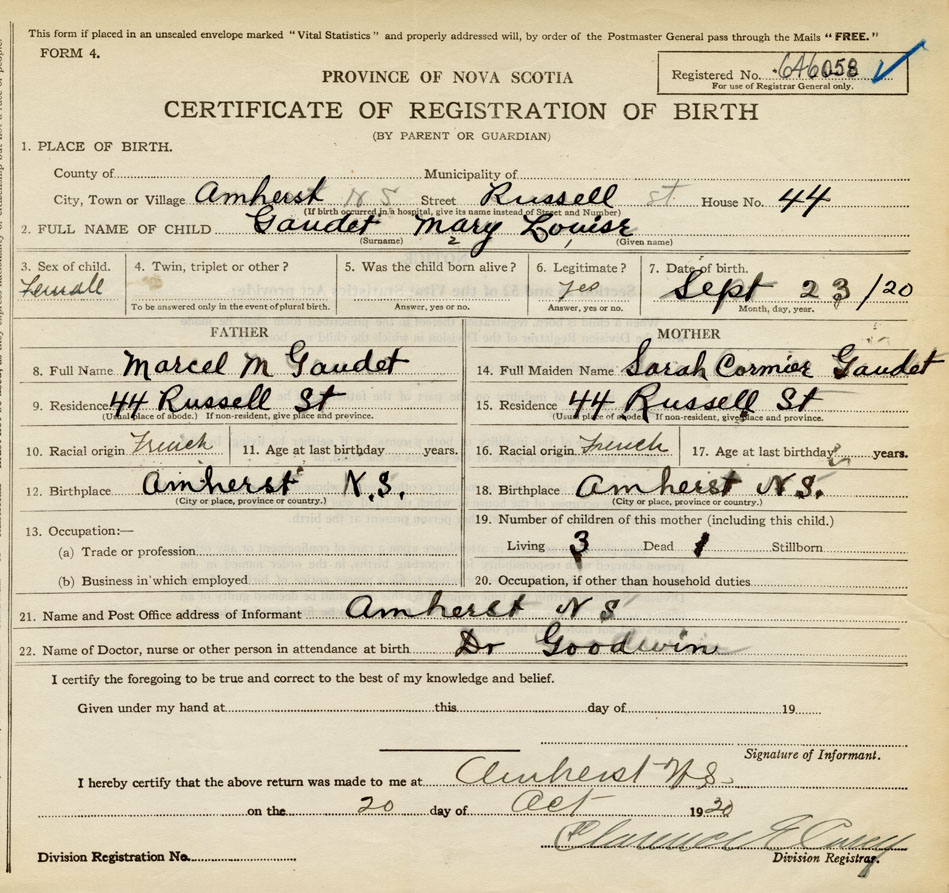 This form if placed in an unsealed envelope marked "Vital Statistics" and properly addressed will, by order of the Postmaster General pass through the Mails "FREE."
FORM 4.
PROVINCE OF NOVA SCOTIA
Registered No. 646058
For use of Registrar General only.
CERTIFICATE OF REGISTRATION OF BIRTH
(BY PARENT OR GUARDIAN)
1. PLACE OF BIRTH.
County of Municipality of
City, Town or Village Amherst N S Street Russell st House No. 44
(If birth occurred in a hospital, give its name instead of Street and Number)
2. FULL NAME OF CHILD Gaudet Mary Louise
(Surname) 2 (Given name)
3. Sex of child. 4. Twin, triplet or other? 5. Was the child born alive? 6. Legitimate? 7. Date of birth.
Female yes Sept 23/20
To be answered only in the event of plural birth. Answer, yes or no. Answer, yes or no. Month, day, year.
FATHER MOTHER
8. Full Name Marcel M Gaudet 14. Full Maiden Name Sarah Cormier Gaudet
9. Residence 44 Russell St 15. Residence 44 Russell St
(Usual place of abode.) If non-resident, give place and province. (Usual place of abode.) If non-resident, give place and province.
10. Racial origin French 11. Age at last birthday years. 16. Racial origin French 17. Age at last birthday years.
12. Birthplace Amherst N.S. 18. Birthplace Amherst N.S.
(City or place, province or country.) (City or place, province or country.)
13. Occupation:— 19. Number of children of this mother (including this child.)
(a) Trade or profession Living 3 Dead 1 Stillborn
(b) Business in which employed 20. Occupation, if other than household duties
21. Name and Post Office address of Informant Amherst N S
22. Name of Doctor, nurse or other person in attendance at birth Dr Goodwin
I certify the foregoing to be true and correct to the best of my knowledge and belief.
Given under my hand at this day of 19
Signature of Informant.
I hereby certify that the above return was made to me at Amherst N.S.
on the 20 day of Oct 1920
Clarence E Casey
Division Registration No. Division Registrar.